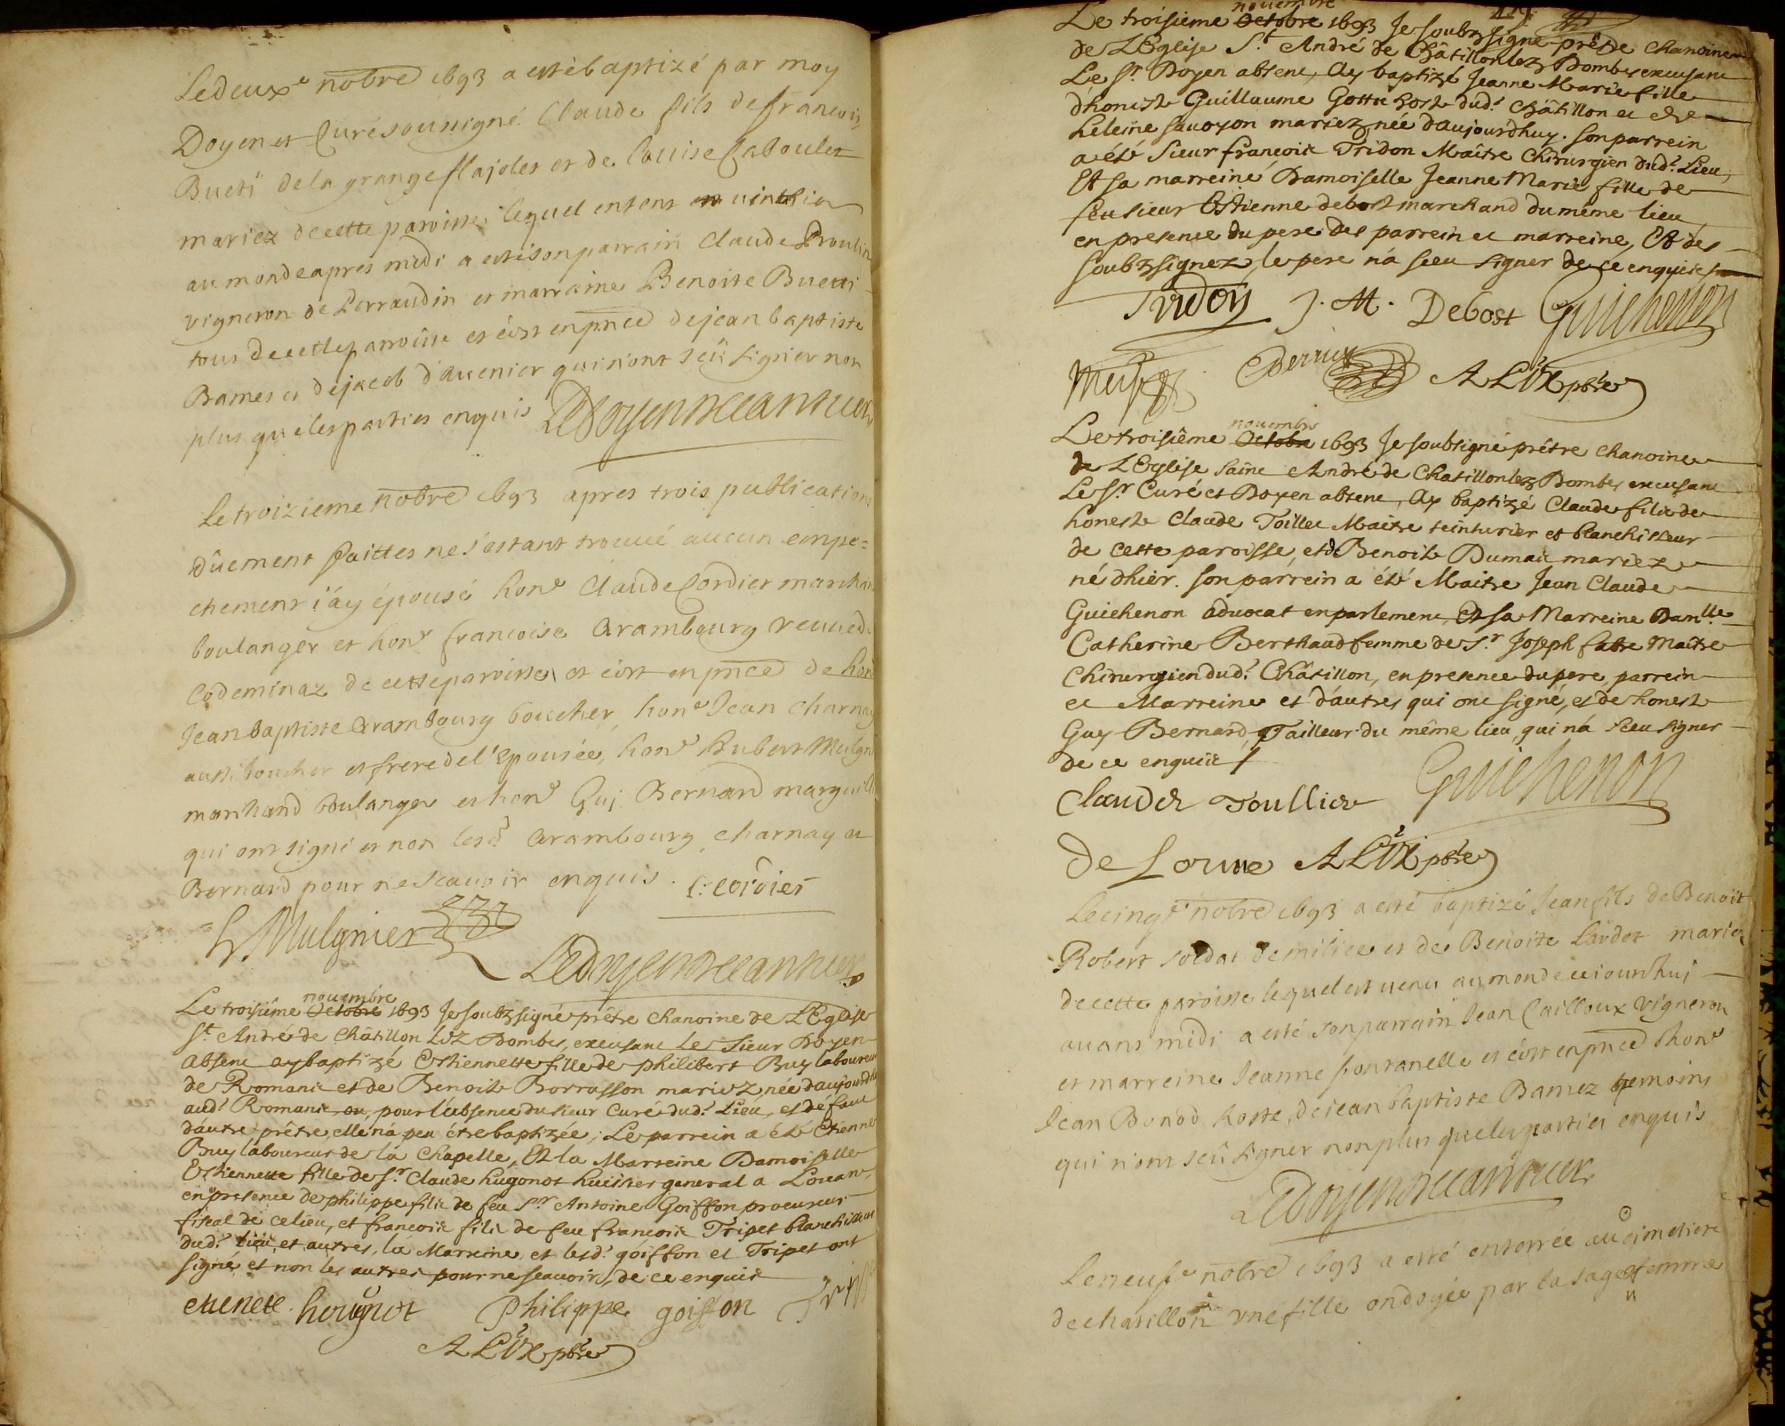 Le deuxe nobre 1693 a esté baptizé par moy
Doyen et Curé soussigné Claude fils de francois
Bueti de la grange flajoles et de louise Caboulet
mariez de cette paroisse lequel
au monde apres midi a esté son parrain Claude Proulin
vigneron de Perraudin et marraine Benoite Buetti
tous de cette parroisse et ce en pnce de jean baptiste
Bames et de jacob dauenier qui n'ont sçü signer non
plus que les parties enquis LeDoyen
Le troizieme nobre 1693 apres trois publications
düement faittes ne s'estant trouué aucun empe=
chement i'ay épousé hone Claude Cordier marchand
boulanger et hone francoise Arambourg veuue de
Codeminaz de cette paroisse et ce en pnce de hon
Jean baptiste Arambourg boucher, hone Jean Charnay
aussi boucher et frere de l'epousée, hone hubert Mulgni
marchand boulanger et hone Guj Bernard marguill
qui ont signé et non lesd Arambourg, Charnay et
Bernard pour ne scauoir enquis. C: cordier
h Mulgnier
LeDoyen
Le troisiéme Octobre novembre 1693 Je soubzsigné prêtre chanoine de L'Eglise
St. André de Châtillon Léz Dombes, excusant Le Sieur Doyen
absent ay baptizé Estiennette fille de philibert Buy laboureur
de Romans et de Benoite Borrasson mariez née d'aujourdhuy
aud.t Romans ou, pour l'absence du sieur curé dud.t Lieu, et défaut
d'autre prêtre, elle n'a peu être baptizée; Le parrein a été Etienne
Buy laboureur de la Chapelle, Et la Marreine Damoiselle
Estiennette fille de Sr. Claude hugonot huissier general a
en presence de philippe fils de feu Sr. Antoine Goiffon procureur
fiscal de ce lieu, et francois fils de feu francois Tripet blanchisseur
dud.t lieu et autres, la Marreine et lesd.ts goiffon et Tripet ont
signé et non les autres pour ne scauoir, de ce enquis
etienete hougnot Philippe goiffon
ALix pbre
Le troisiéme Octobre novembre 1693 Je soubzsigné prêtre chanoine
de L'Eglise S.t André de Châtillon lez Dombes excusant
Le Sr. Doyen absent, Ay baptizé Jeanne Marie fille
d'honeste Guillaume Gottu hoste dud.t Châtillon et de
heleine sauoyon mariez, née d'aujourd'huy. son parrein
a été Sieur francois Tridon Maître Chirurgien dud.t Lieu,
Et sa marreine Damoiselle Jeanne Marie fille de
feu sieur Estienne debost marchand du même lieu
en presence du pere des parrein et marreine, Et des
soubzsignez, le pere n'a sceu signer de ce enquis
Tridon J. M. Debost Guichenon
Perrier ALix pbre
Le troisiême Octobre novembre 1693 Je soubsigné prêtre chanoine
de L'Eglise Saint André de Chatillon lez Dombes excusant
Le Sr. Curé et Doyen absent, Ay baptizé Claude fils de
honeste Claude Toillier Maitre teinturier et blanchisseur
de cette paroisse, et de Benoite Dumas mariez
né d'hier. son parrein a été Maitre Jean Claude
Guichenon advocat en parlement, Et sa Marreine Damlle
Catherine Berthaud femme de Sr. Joseph fabre Maître
Chirurgien dud.t Châtillon, en presence du pere, parrein
et Marreine et d'autres qui ont signé, et de honeste
Guy Bernard Tailleur du même lieu, qui n'a sceu signer
de ce enquis
Claude Toullier Guichenon
De Loriue ALix pbre
Le cinqe nobre 1693 a esté baptizé Jean fils de Benoit
Robert soldat de milice et de Benoite Lardet mariez
de cette paroisse lequel est uenu au monde ceiourdhuj
auant midi a esté son parrain Jean Cailloux vigneron
et marreine Jeanne fontanelle et ce en pnce d'hone
Jean Bonod hoste, de jean baptiste Bamez temoins
qui n'ont sçû signer non plus que les parties enquis
LeDoyen
Le neufe nobre 1693 a esté enterrée au cimetiere
de chatillon vne fille ondoyée par la sage femme